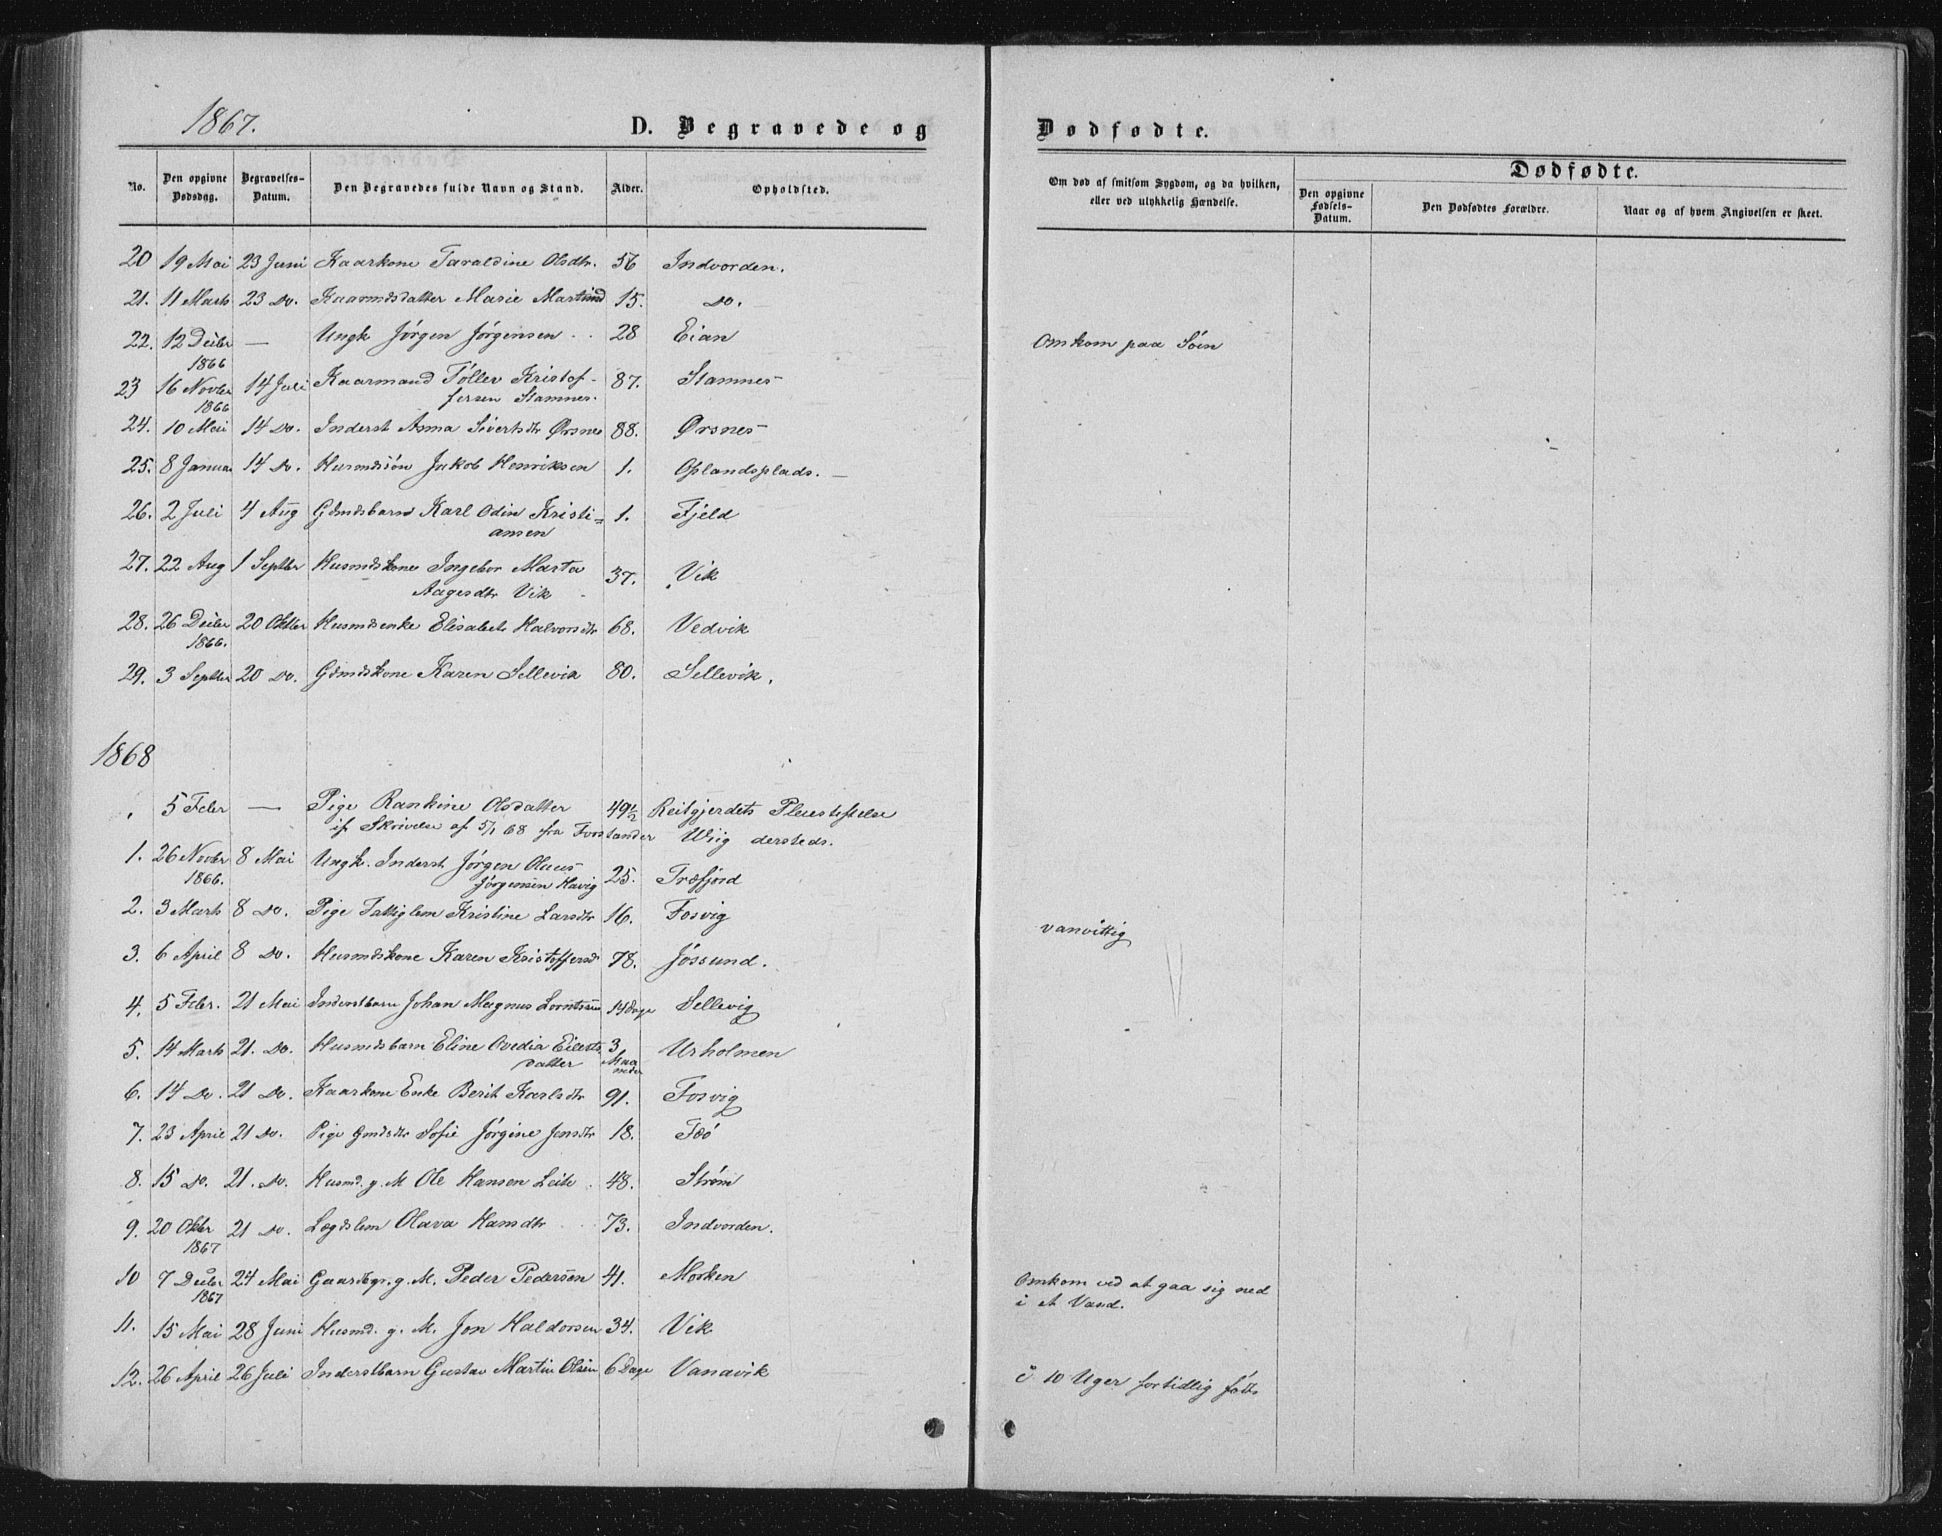 1867.
D. Begravede og
Dødfødte.
No.
Den opgivne Dødsdag.
Begravelses-Datum.
Den Begravedes fulde Navn og Stand.
Alder.
Opholdsted.
Om død af smitsom Sygdom, og da hvilken, eller ved ulykkelig Hændelse.
Dødfødte.
Den opgivne Fødsels-Datum.
Den Dødfødtes Forældre.
Naar og af hvem Angivelsen er skeet.
20 19 Mai 23 Juni Kaarkone Taraldine Olsdtr. 56 Indvorden.
21. 11 Marts 23 Do. Kaarmdsdatter Marie 15. Do.
22. 12 Decbr — Ungk Jørgen Jørgensen 28 Eian Omkom paa Søen
1866
23 16 Novbr 14 Juli Kaarmand Töller Kristof- 87. Stamnes
1866 fersen Stamnes.
24. 10 Mai 14 Do. Inderst Anna Sivertsdtr Ørsnes 88. Ørsnes
25. 8 Januar 14 Do. Husmdssøn Jakob Henriksen 1. Oplandsplads.
26. 2 Juli 4 Aug Gdmdsbarn Karl Odin Kristi- 1. Fjeld
ansen
27. 22 Aug 1 Septbr Husmdskone Ingebor Marta 37. Vik
Aagesdtr Vik
28. 26 Decbr 20 Oktbr Husmdsenke Elisabeth Halvorsdtr 68. Vedvik
1866.
29. 3 Septbr 20 Do. Gdmdskone Karen Sellevik 80. Sellevik.
1868
5 Febr — Pige Rankine Olsdatter 49½ Reitgjerdets Pleiestiftelse
if. Skrivelse af 5/1 68 fra Forstander Wiig dersteds.
1. 26 Novbr 8 Mai Ungk. Inderst Jørgen Olaus 25. Træfjord
1866. Jørgensen Havig
2. 3 Marts 8 Do. Pige Fattiglem Kristine Larsdtr 16. Fosvig vanvittig
3. 6 April 8 Do. Husmdskone Karen Kristoffersd 78. Jøssund.
4. 5 Febr. 21 Mai Inderstbarn Johan Magnus Lorntsen 14 Dage Sellevig
5. 14 Marts 21. Do. Husmdsbarn Eline Ovedia Eilerts 3 Maaneder Urholmen
datter
6. 14 Do. 21 Do. Kaarkone Enke Berit Karlsdtr 91. Fosvig
7. 23 April 21 Do. Pige Gmdsdtr Sofie Jørgine Jensdtr 18.
8. 15 Do. 21. Do. Husmd. g. M Ole Hansen Leite 48. Strøm
9. 20 Oktbr 21 Do. Lægdslem Olava Hansdtr 73. Indvorden.
1867
10 7 Decbr 24 Mai Gaardbgr. g. M. Peder Pedersen 41. Morken Omkom ved at gaa sig ned
1867 i et Vand.
11. 15 Mai 28 Juni Husmd. g. M. Jon Haldorsen 34. Vik
12. 26 April 26 Juli Inderstbarn Gustav Martin Olsen 6 Dage Vanavik 10 Uger fortidlig født